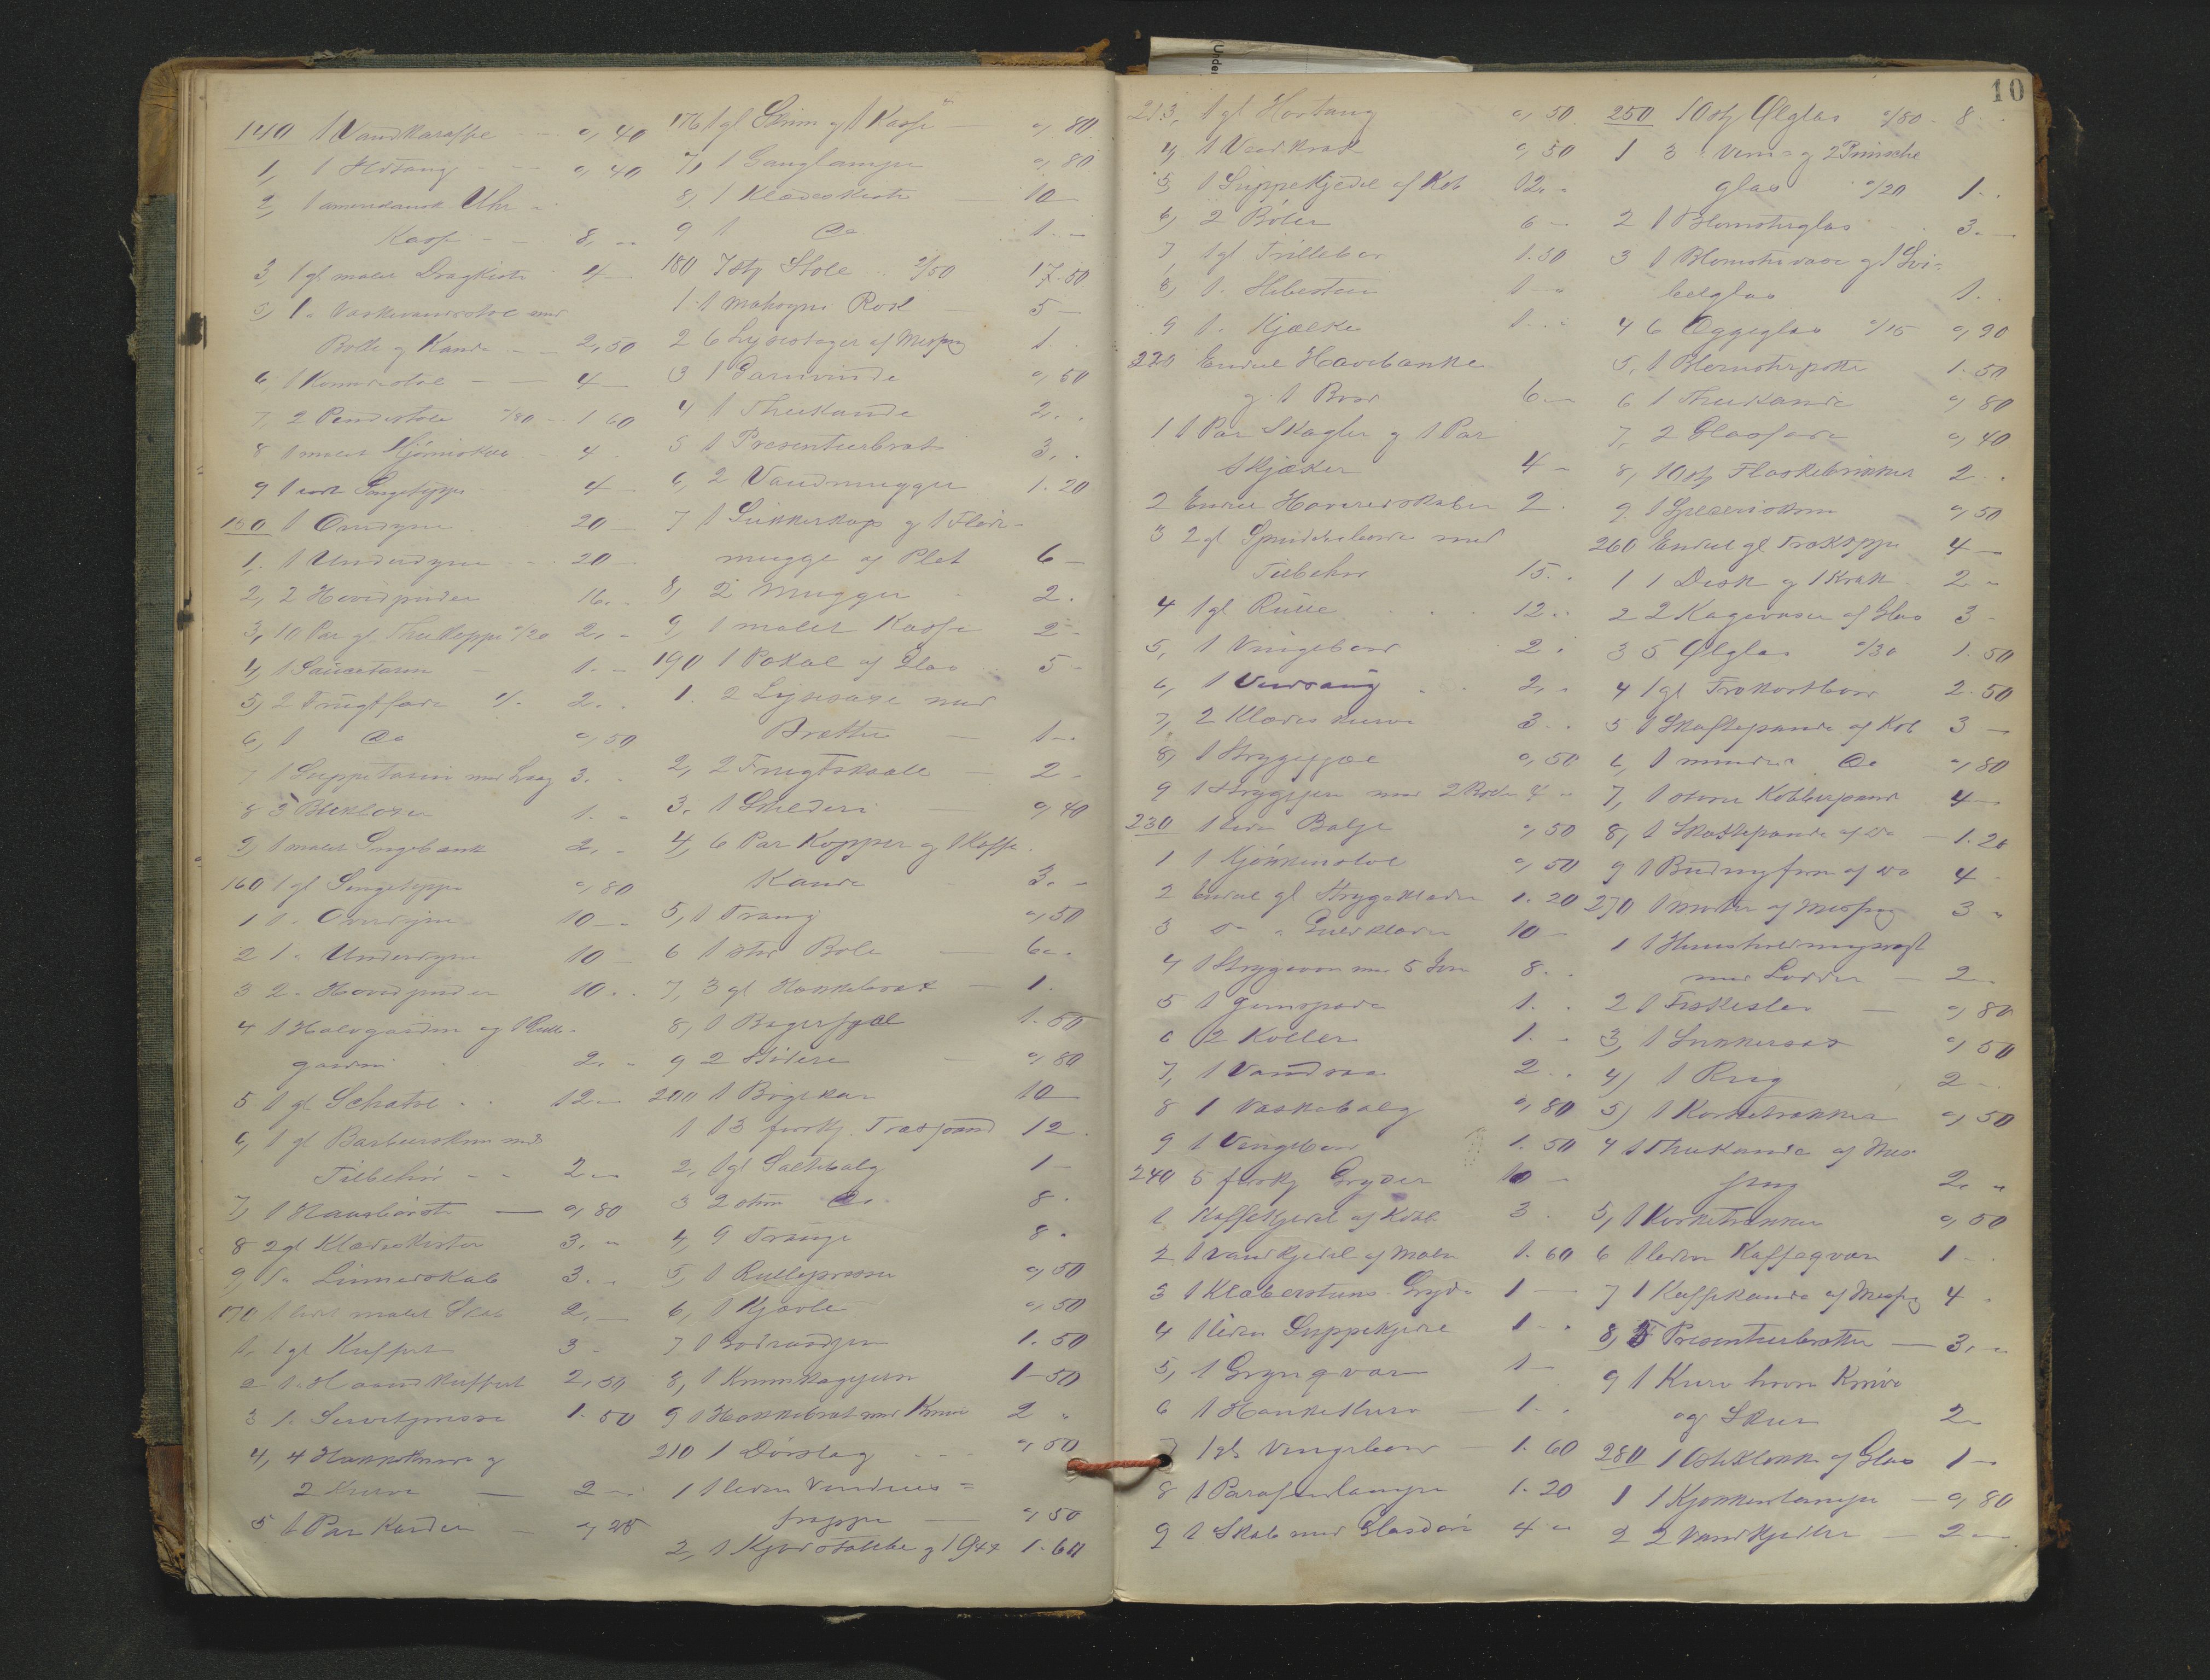 140 1 Vandkaraffe - - 0,40
1, 1 Ildtang - - 0,40
2, 1 amerikansk Uhr
Kasse - - 8. -
3, 1 gl. malet Dragkiste 4 -
5, 1 " Vaskevandsstol med
Bolle og Kande - - 2,50
6, 1 Komode - - 4 -
7, 2 Pindestole 0/80 - 1 60
8 1 malet Hjørneskab - 4 -
9 1 Sengetæppe 4 -
150 1 Overdyne 20 -
1, 1 Underdyne - 20 -
2, 2 Hovedpuder 16. -
3, 10 Par gl. Theekopper 0/20 2. -
4, 1 Sauceterin 1. -
5, 2 Frugtfade 1/- 2. -
6, 1 do 0,50
7 1 Suppeterin med Laag 3. -
8 5 Blikboxer 1. -
9, 1 malet Sengebænk 2. -
160 1 gl Sengetæppe 0,80
1 1 " Overdyne 10 -
2 1 " Underdyne 10 -
3 2 " Hovedpuder 10. -
4 1 Halvgardin og 1 Rulle-
gardin 2. -
5 1 gl Schatol - - 12 -
6, 1 gl Barbeerskrin med
Tilbehør - - 2 -
7, 1 Haarbørste - 0,80
8 2 gl Klædeskister 3. -
9, 1 " Linnedskab 3. -
170 1 lidet malet Skab 2. -
1, 1 gl Kuffert 3 -
2 1 " Haandkuffert 2,50
3 1 " Servietpresse 1. 50
4, 4 Hakkeknive og
2 Kurve - 2 -
5 6 Par Karder -
176 1 gl Skrin og 1 Kasse - 0,80
7, 1 Ganglampe 0,80
8, 1 Klædeskiste 10 -
9 1 do 1. -
180 7 stk Stole 2/50 17.50
1 1 mahogni Bord - 5 -
2 6 Lysestager af Messing 1.
3 1 Garnvinde 0,50
4 1 Theekande 2. -
5 1 Presenteerbræt 3. -
6, 2 Vandmugger 1.20
7 1 Sukkerkop og 1 Fløde-
mugge af Plet 6 -
8, 2 Mugger 2.
9, 1 malet Kasse 2 -
190 1 Pokal af Glas 5 -
1. 2 Lysesaxe med
Brætter - 1 -
2, 2 Frugtskaale - 2 -
3. 1 Skilderi - 0,40
4, 6 Par Kopper og 1 Kaffe-
Kande 3. -
5, 1 Traug 0,50
6 1 stor Bole - 6 -
7, 3 gl Hakkebræt - 1.
8, 1 Bagerfjøl 1. 50
9 2 - 0,80
200 1 Bryggekar 10 -
1 13 forskj. Træspand 12.
2, 1 gl Saltebalg 1 -
3 2 store do 8.
4, 9 Trauge 8.
5, 1 Rullepresse 0,50
6, 1 Kjævle 0,50
7 1 Goraadjern 1. 50
8, 1 Krumkagejern 1-50
9 1 Hakkebræt med Kniv 2 "
210 1 Dørslag - - 0,50
1 1 liden Vindues =
trappe - 0,50
2, 1. 60
213, 1 gl Hørbang 0,50
4, 1 Vedkrak 0,50
5, 1 Suppekjedel af Kob 12. "
6, 2 Bøtter 6 -
7, 1 gl Trillebør 1.50
8, 1 " Slibesteen 1 - "
9 1 " Kjælke 1 - "
220 Endeel Havebænke
og 1 Bord 6 -
1 1 Par Skagler og 1 Par
Skjæker 4 -
2 Endeel Haveredskaber 2 -
3 2 gl med
Tilbehør 15. -
4 1 gl Rulle - - 12. -
5, 1 Vingebord 2 -
6, 1 - - 2. "
7, 2 Klædeskurve 3 -
8, 1 Strygefjæl 0,50
9 1 Strygejern med 2 Bolte 4 -
230 1 liden Balje 0,50
1 1 Kjøkkenstol 0,50
2 Endeel gl Strygeklæder 1. 20
3 do " Gulvklæder 10 -
4 1 Strygeovn med 5 Jern 8. -
5 1 Jernspade 1. -
6 2 Koller 1. -
7, 1 Vandsaa 2. -
8 1 Vaskebalg 0,80
9 1 Vingebord 1. 50
240 5 forskj Gryder 10 -
1 Kaffekjedel af Kobb 3.
2 1 Vandkjedel af Malm 1. 60
3 1 Klæberstens Gryde 1 -
4 1 liden Suppekjedel 1 - "
5, 1 Grynqværn 1 -
6 1 Hankekurv 1. -
7 1 gl. Vingebord - 1. 60
8 1 Parafinlampe 1. 20
9 1 Skab med Glasdøre 4 "
10
250 10 stk Ølglas 0/80 - 8 -
1 3 Vin- og 2 Punsche
glas 0/20 1. -
2 1 Blomsterglas 3. -
3 1 Blomstervase og 1 Svi-
belglas 1.
4 6 Æggeglas 0/15 0,90
5, 1 Blomsterpotte 1. 50
6 1 Theekande 0,80
7, 2 Glasfade 0,40
8, 10 stk Flaskebrikker 2. -
9. 1 Specericskrin 0,50
260 Endeel gl. Træskopper 4 -
1 1 Disk og 1 Krak 2 -
2 2 Kagevaser af Glas 3 -
3 5 Ølglas 0/30 1. 50
4 1 gl Frokostbord 2.50
5 1 Skaftepande af Kob 3 -
6, 1 mindre do 0,80
7, 1 større Kobberpande 4 -
8, 1 Skaftepande af do - 1. 20
9 1 Budingform af do 4 -
270 1 Morter af Messing 3 "
1 1 Huusholdningsvægt
med Lodder - 2 -
2 1 Fiskeslev - 0,80
3, 1 Sukkersax 0,50
4) 1 Rug 2 -
5) 1 Korketrækker 0,50
4 1 Theekande af Mes-
sing 2. "
5, 1 Korketrækker 0,50
6 1 liden Kaffeqværn 1 -
7 1 Kaffekande af Messing 4 -
8, 5 Presenteerbrætter - 3. "
9 1 Kurv hvori Knive
og Skeer 2 -
280 1 Osteklokke af Glas 1 -
1 1 Kjøkkenlampe - 0,80
2 2 Vandkjedler - 2 -